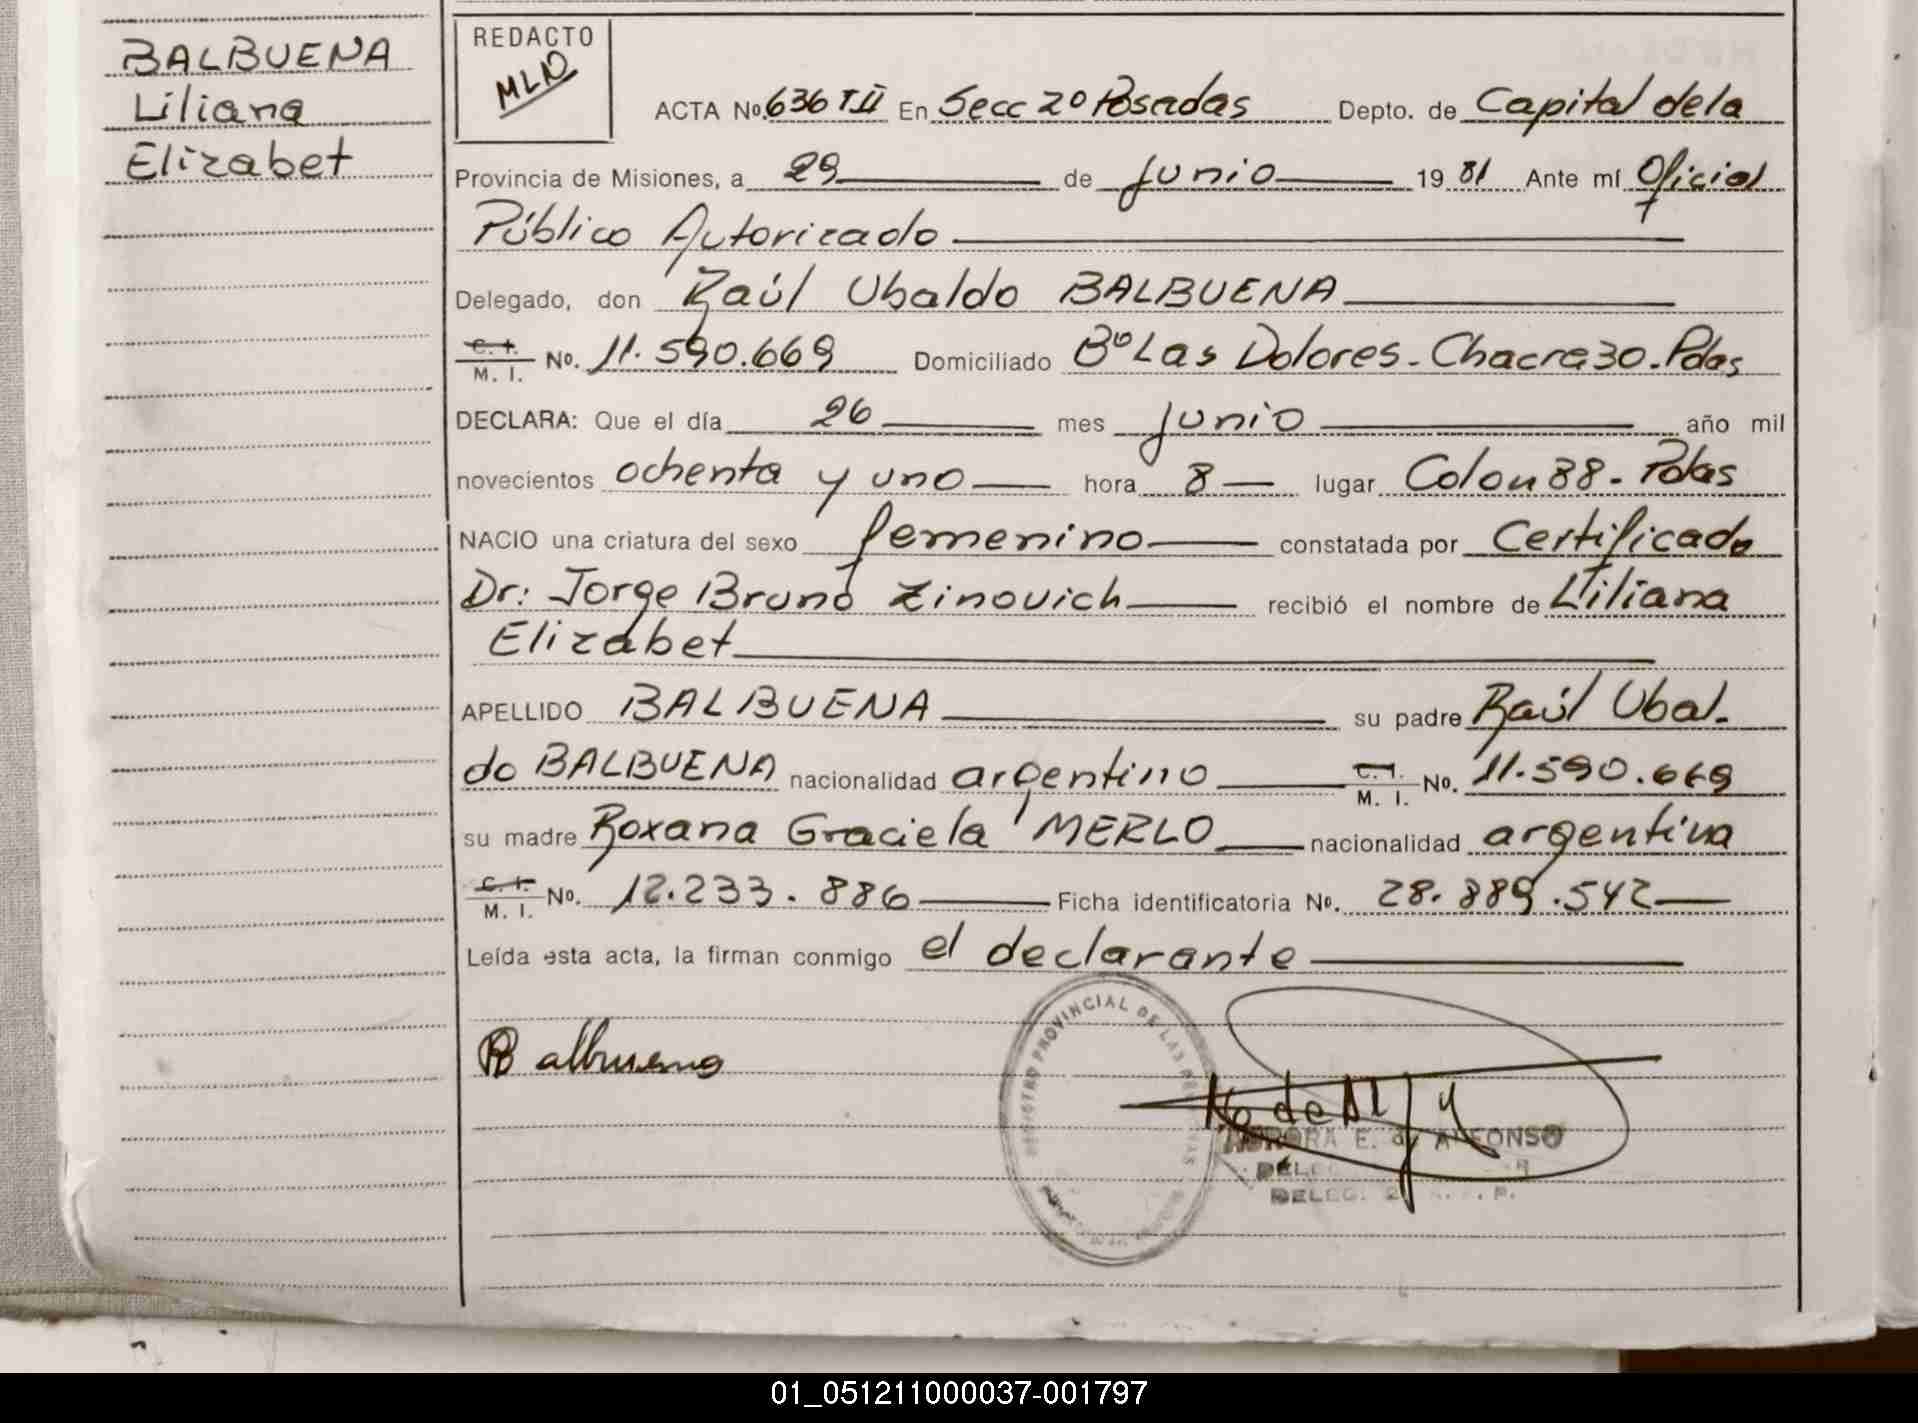 BALBUENA
Liliana
Elizabet
REDACTO
MLN
ACTA No. 636 TII En Secc 2º Posadas Depto. de Capital de la
Provincia de Misiones, a 29 de junio 1981 Ante mí Oficial
Público Autorizado
Delegado, don Raúl Ubaldo BALBUENA
C. I. M. I. No. 11.590.669 Domiciliado Bº Las Dolores - Chacra 30. Pdas
DECLARA: Que el día 26 mes junio año mil
novecientos ochenta y uno hora 8 lugar Colon 88 - Pdas
NACIO una criatura del sexo femenino constatada por Certificado
Dr: Jorge Bruno Zinovich recibió el nombre de Liliana
Elizabet
APELLIDO BALBUENA su padre Raúl Ubal-
do BALBUENA nacionalidad argentino C. I. M. I. No. 11.590.669
su madre Roxana Graciela MERLO nacionalidad argentina
C. I. M. I. No. 12.233.886 Ficha identificatoria No. 28.889.542
Leída esta acta, la firman conmigo el declarante
RBalbuena
REGISTRO PROVINCIAL DE LAS PERSONAS
AURORA E. de ALFONSO
DELEG. 2
01_051211000037-001797